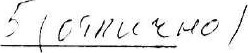 5 (отлично)